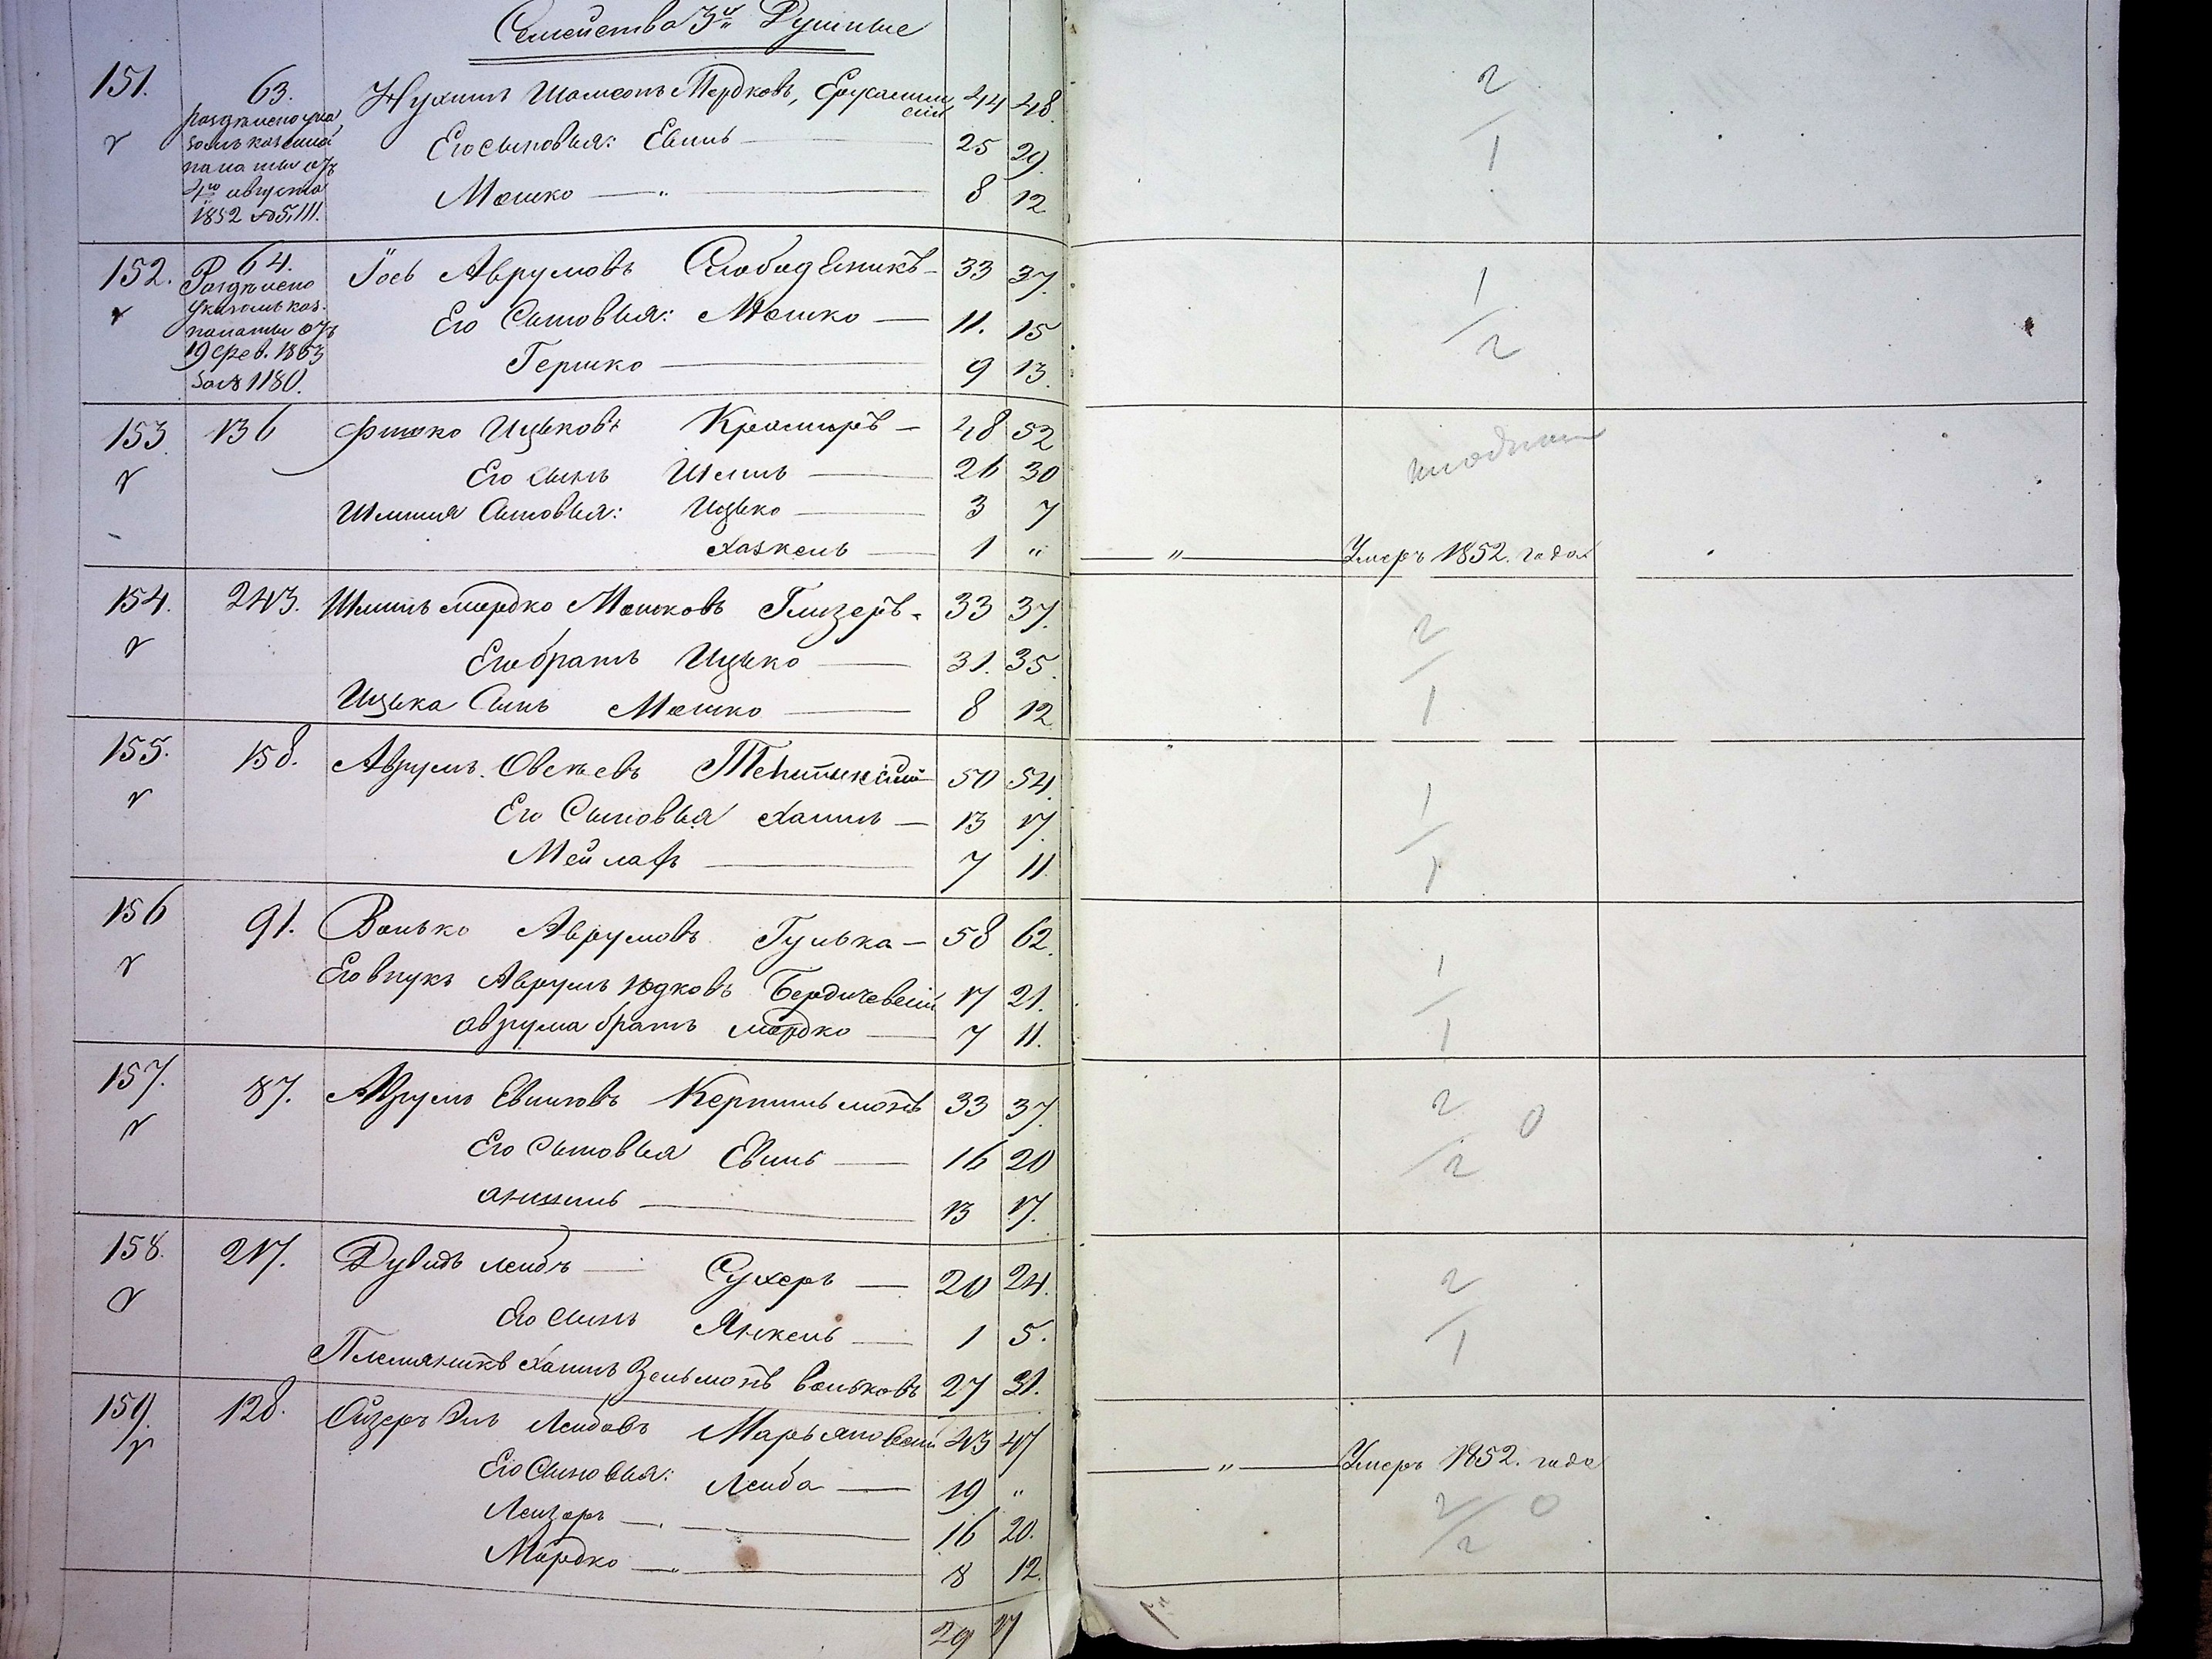 Семейства 3х Душные
151. 63. Нухимъ Шамсонъ Мордковъ, Ерусалим 44 48.
раздѣлено ука скій
зомъ казенной Его сыновья: Евель 25 29.
палаты отъ
4го августа Мошко — „ 8 12
1852 №5,111.
2
1
152. 64. Іось Аврумовъ Слободяникъ 33 37.
Раздѣлено
указомъ каз. Его Сыновья: Мошко — 11. 15
палаты отъ
19 Фев. 1853 Гершко 9 13.
за № 1180.
1
2
153. 136 Фишко Ицьковъ Крамаръ — 48 52
Его сынъ Шлимъ 26 30
ШлиМа Сыновья: Ицько 3 7
Хаскель 1 „ „ Умеръ 1852. года
154. 243. мордко Мошковъ Глизеръ 33 37.
Его братъ Ицько 31. 35.
Ицька Сынъ Мошко 8 12
2
1
155. 158. Аврумъ Овсеевъ 50 54.
Его Сыновья Хаимъ — 13 17.
Мейлахъ 7 11
1
1
156 91. Волько Аврумовъ Гулька — 58 62.
Его внукъ Аврумъ Юдковъ Бердичевскій 17 21.
аврума братъ мордко 7 11.
1
1
157. 87. Аврумъ Евелевъ 33 37.
Его Сыновья Евель 16 20
аншель 13 17.
2 0
2
158. 217. Дувидъ Лейбъ — Сухеръ — 20 24.
Его сынъ Янкель 1 5.
Племянникъ Хаимъ Зельмонъ вольковъ 27 31.
2
1
159. 128. Ойзеръ Эль Лейбовъ Марьяновскій 43 47
Его Сыновья: Лейба — 19 „ „ Умеръ 1852. года
Лейзеръ — 16 20.
Мордко — „ 8 12.
2 0
2
29 27